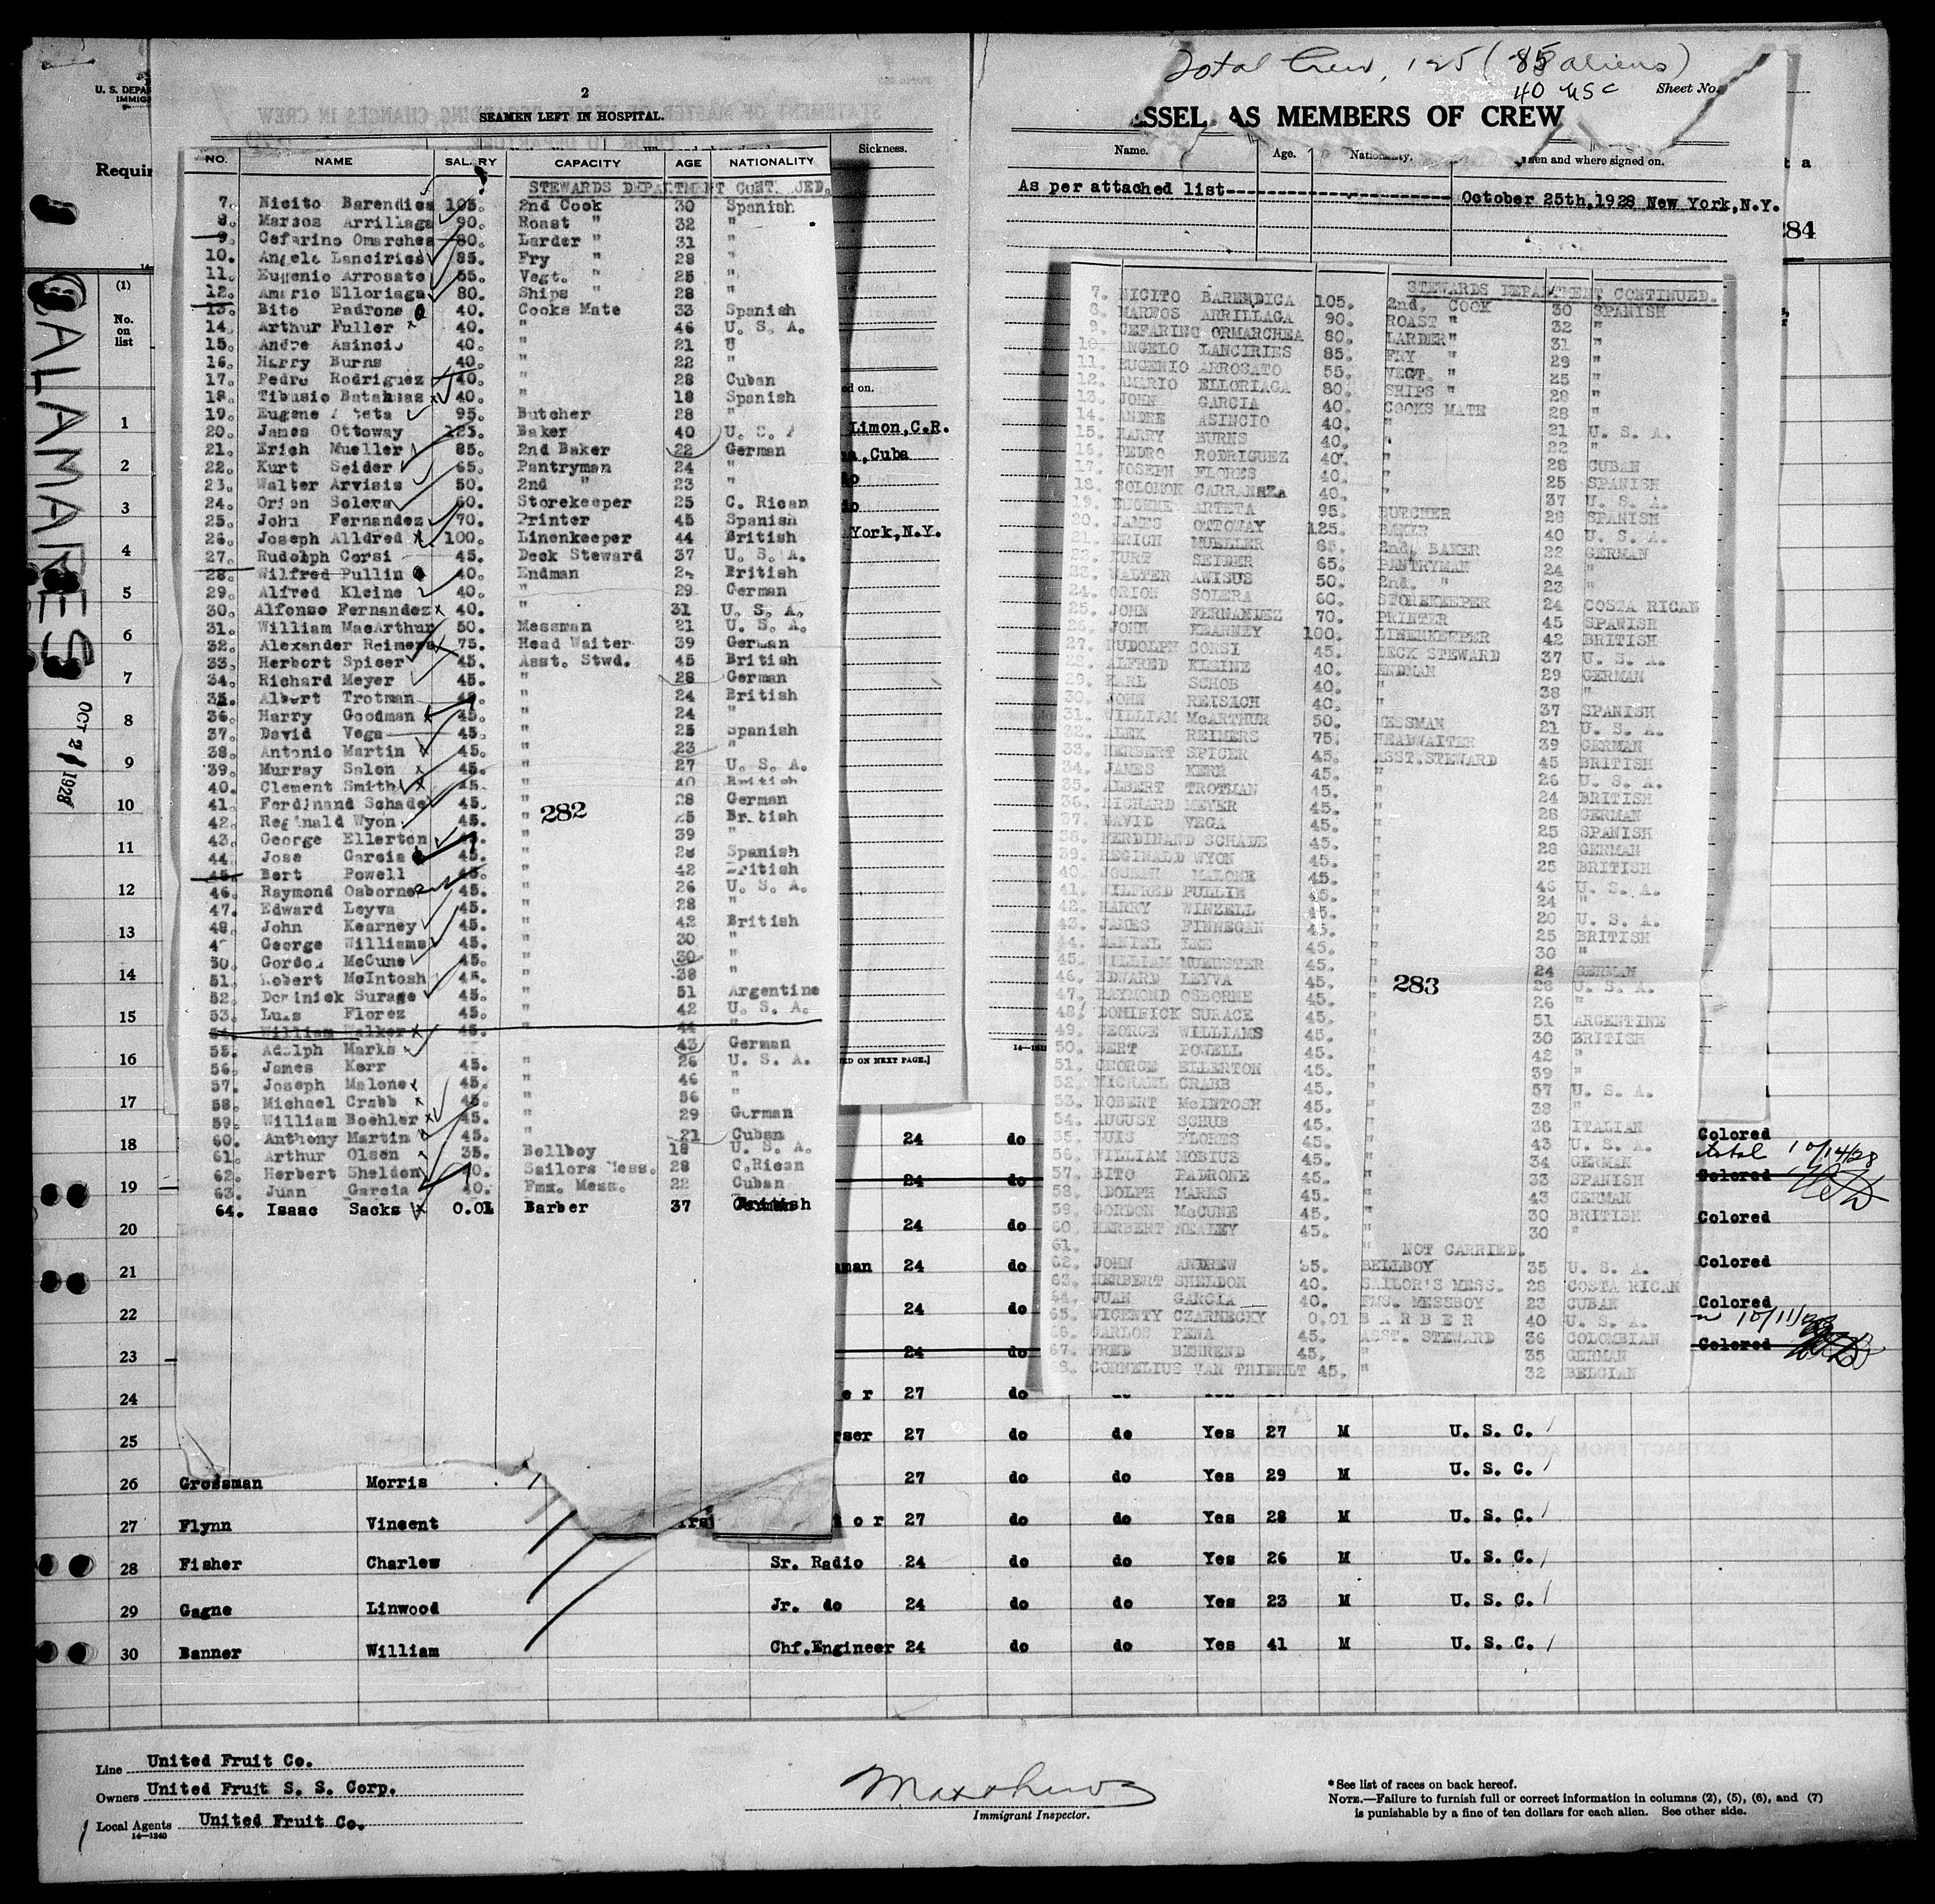 Total Crew, 125 (85 aliens)
40 USC
Sheet No.
U. S. DEPA
IMMIG
2
SEAMEN LEFT IN HOSPITAL.
ESSEL AS MEMBERS OF CREW
Requir
Sickness.
Name. Age. Nationality. en and where signed on.
As per attached list October 25th, 1928 New York, N.Y.
284
NO. NAME SALARY CAPACITY AGE NATIONALITY
STEWARDS DEPARTMENT CONTINUED.
7. Nicito Barendica 105. 2nd Cook 30 Spanish
8. Marcos Arrillaga 90. Roast " 32 "
9. Cefarino Omarchea 80. Larder " 31 "
10. Angelo Lanciries 85. Fry " 28 "
11. Eugenio Arrosato 55. Vegt. " 25 "
12. Amario Elloriaga 80. Ships " 28 "
13. Bito Padrone 40. Cooks Mate 33 Spanish
14. Arthur Fuller 40. " 46 U. S. A.
15. Andre Asincio 40. " 21 "
16. Harry Burns 40. " 22 "
17. Pedro Rodriguez 40. " 28 Cuban
18. Tibusio 40. " 18 Spanish
19. Eugene 95. Butcher 28 "
20. James Ottoway 125. Baker 40 U. S. A
21. Erich Mueller 85. 2nd Baker 22 German
22. Kurt Seider 65. Pantryman 24 "
23. Walter Arvisis 50. 2nd " 23 "
24. Orion Solera 60. Storekeeper 25 C. Rican
25. John Fernandez 70. Printer 45 Spanish
26. Joseph Alldred 100. Linenkeeper 44 British
27. Rudolph Corsi 45. Deck Steward 37 U. S. A.
28. Wilfred Pullin 40. Endman 24 British
29. Alfred Kleine 40. " 29 German
30. Alfonso Fernandez 40. " 31 U. S. A.
31. William MacArthur 50. Messman 21 U. S. A.
32. Alexander Reimers 75. Head Waiter 39 German
33. Herbert Spicer 45. Asst. Stwd. 45 British
34. Richard Meyer 45. " 28 German
35. Albert Trotman 45. " 24 British
36. Harry Goodman 45. " 24 "
37. David Vega 45. " 25 Spanish
38. Antonio Martin 45. " 23 "
39. Murray Salon 45. " 27 U. S. A.
40. Clement Smith 45. " 40 British
41. Ferdinand Schade 45. " 28 German
42. Reginald Wyon 45. " 25 British
282
43. George Ellerton 45. " 39 "
44. Jose Garcia 45. " 28 Spanish
45. Bert Powell 45. " 42 British
46. Raymond Osborne 45. " 26 U. S. A.
47. Edward Leyva 45. " 28 "
48. John Kearney 45. " 42 British
49 George Williams 45. " 30 "
50. Gordon McCune 45. " 30 "
51. Robert McIntosh 45. " 38 "
52. Dominick Surage 45. " 51 Argentine
53. Luis Florez 45. " 42 U. S. A.
54. William Walker 45. " 44 "
55. Adolph Marks " 43 German
56. James Kerr 45. " 26 U. S. A.
57. Joseph Malone 45. " 46 "
58. Michael Crabb 45. " 56 "
59. William Boehler 45. " 29 German
60. Anthony Martin 45. " 21 Cuban
61. Arthur Olsen 35. Bellboy 18 U. S. A.
62. Herbert Sheldon 40. Sailors Mess. 28 C.Rican
63. Juan Garcia 40. Fmx. Mess. 22 Cuban
64. Isaac Sacks 0.01 Barber 37 British
STEWARDS DEPARTMENT CONTINUED.
7. NICITO BARENDICA 105. 2nd. COOK 30 SPANISH
8. MARNOS ARRILLAGA 90. ROAST " 32 "
9. CEFARINO ORMARCHEA 80. LARDER" 31 "
10. ANGELO LANCIRIES 85. FRY " 29 "
11. EUGENIO ARROSATO 55. VEGT. " 25 "
12. AMARIO ELLORIAGA 80. SHIPS " 28 "
13. JOHN GARCIA 40. COOKS MATE 28 "
14. ANDRE ASINCIO 40. " 21 U. S. A.
15. HARRY BURNS 40. " 22 "
16. PEDRO RODRIGUEZ 40. " 28 CUBAN
17. JOSEPH FLORES 40. " 25 SPANISH
18. SOLOMON CARRANZA 40. " 37 U. S. A.
19. EUGENE ARTETA 95. BUTCHER 28 SPANISH
20. JAMES OTTOWAY 125. BAKER 40 U. S. A.
21. ERICH MUELLER 85. 2nd. BAKER 22 GERMAN
22. KURT SEIDER 65. PANTRYMAN 24 "
23. WALTER AWISUS 50. 2nd. " 23 "
24. ORION SOLERA 60. STOREKEEPER 24 COSTA RICAN
25. JOHN FERNANDEZ 70. PRINTER 45 SPANISH
26. JOHN KEARNEY 100. LINENKEEPER 42 BRITISH
27. RUDOLPH CORSI 45. DECK STEWARD 37 U. S. A.
28. ALFRED KLEINE 40. ENDMAN 29 GERMAN
29. KARL SCHOB 40. " 38 "
30. JOHN REISACH 40. " 37 SPANISH
31. WILLIAM McARTHUR 50. MESSMAN 21 U. S. A.
32. ALEX REIMERS 75. HEADWAITER 39 GERMAN
33. HERBERT SPICER 45. ASST.STEWARD 45 BRITISH
34. JAMES KERR 45. " 26 U. S. A.
35. ALBERT TROTMAN 45. " 24 BRITISH
36. RICHARD MEYER 45. " 28 GERMAN
37. DAVID VEGA 45. " 25 SPANISH
38. FERDINAND SCHADE 45. " 28 GERMAN
39. REGINALD WYON 45. " 25 BRITISH
40. JOSEPH MALONE 45. " 46 U. S. A.
41. WILFRED PULLIN 45. " 24 "
42. HARRY WINZELL 45. " 20 U. S. A.
43. JAMES FINNEGAN 45. " 25 BRITISH
44. DANIEL LEE 45. " 30 "
45. WILLIAM MUENSTER 45. " 24 GERMAN
46. EDWARD LEYVA 45. " 28 U. S. A.
283
47. RAYMOND OSBORNE 45. " 26 "
48. DOMINICK SURACE 45. " 51 ARGENTINE
49. GEORGE WILLIAMS 45. " 30 BRITISH
50. BERT POWELL 45. " 42 "
51. GEORGE ELLERTON 45. " 39 "
52. MICHAEL CRABB 45. " 57 U. S. A.
53. ROBERT McINTOSH 45. " 38 "
54. AUGUST SCHUB 45. " 38 ITALIAN
55. LUIS FLORES 45. " 43 U. S. A.
56. WILLIAM MOBIUS 45. " 34 GERMAN
57. BITO PADRONE 45. " 33 SPANISH
58. ADOLPH MARKS 45. " 43 GERMAN
59. GORDON McCUNE 45. " 30 BRITISH
60. HERBERT NEALEY 45. " 30 "
61. " NOT CARRIED.
62. JOHN ANDREW 35. BELLBOY 35 U. S. A.
63. HERBERT SHELDON 40. SAILOR'S MESS. 28 COSTA RICAN
64. JUAN GARCIA 40. FMS. MESSBOY 23 CUBAN
65. WICENTY CZARNECKY 0.01 BARBER 40 U. S. A.
66. CARLOS PENA 45. ASST. STEWARD 36 COLOMBIAN
67. FRED BEHREND 45. " 35 GERMAN
68. CORNELIUS VAN THIENLT 45. " 32 BELGIAN
CALAMARES
OCT 21 1928
(1)
No. on list
1
Limon, C.R.
2
a, Cuba
3
do
4
York, N.Y.
5
6
7
8
9
10
11
12
13
14
15
16
ED ON NEXT PAGE.]
17
18 24 do Colored
10/14/28
19 24 do Colored
20 24 do Colored
21 man 24 do Colored
22 24 do Colored
10/11/28
23 24 do Colored
24 er 27 do
25 rser 27 do do Yes 27 M U. S. C.
26 Grossman Morris 27 do do Yes 29 M U. S. C.
27 Flynn Vincent ior 27 do do Yes 28 M U. S. C.
28 Fisher Charles Sr. Radio 24 do do Yes 26 M U. S. C.
29 Gagne Linwood Jr. do 24 do do Yes 23 M U. S. C.
30 Banner William Chf.Engineer 24 do do Yes 41 M U. S. C.
Line United Fruit Co.
Owners United Fruit S. S. Corp.
Local Agents United Fruit Co.
14—1240
Matthews
Immigrant Inspector.
*See list of races on back hereof.
NOTE.—Failure to furnish full or correct information in columns (2), (5), (6), and (7)
is punishable by a fine of ten dollars for each alien. See other side.